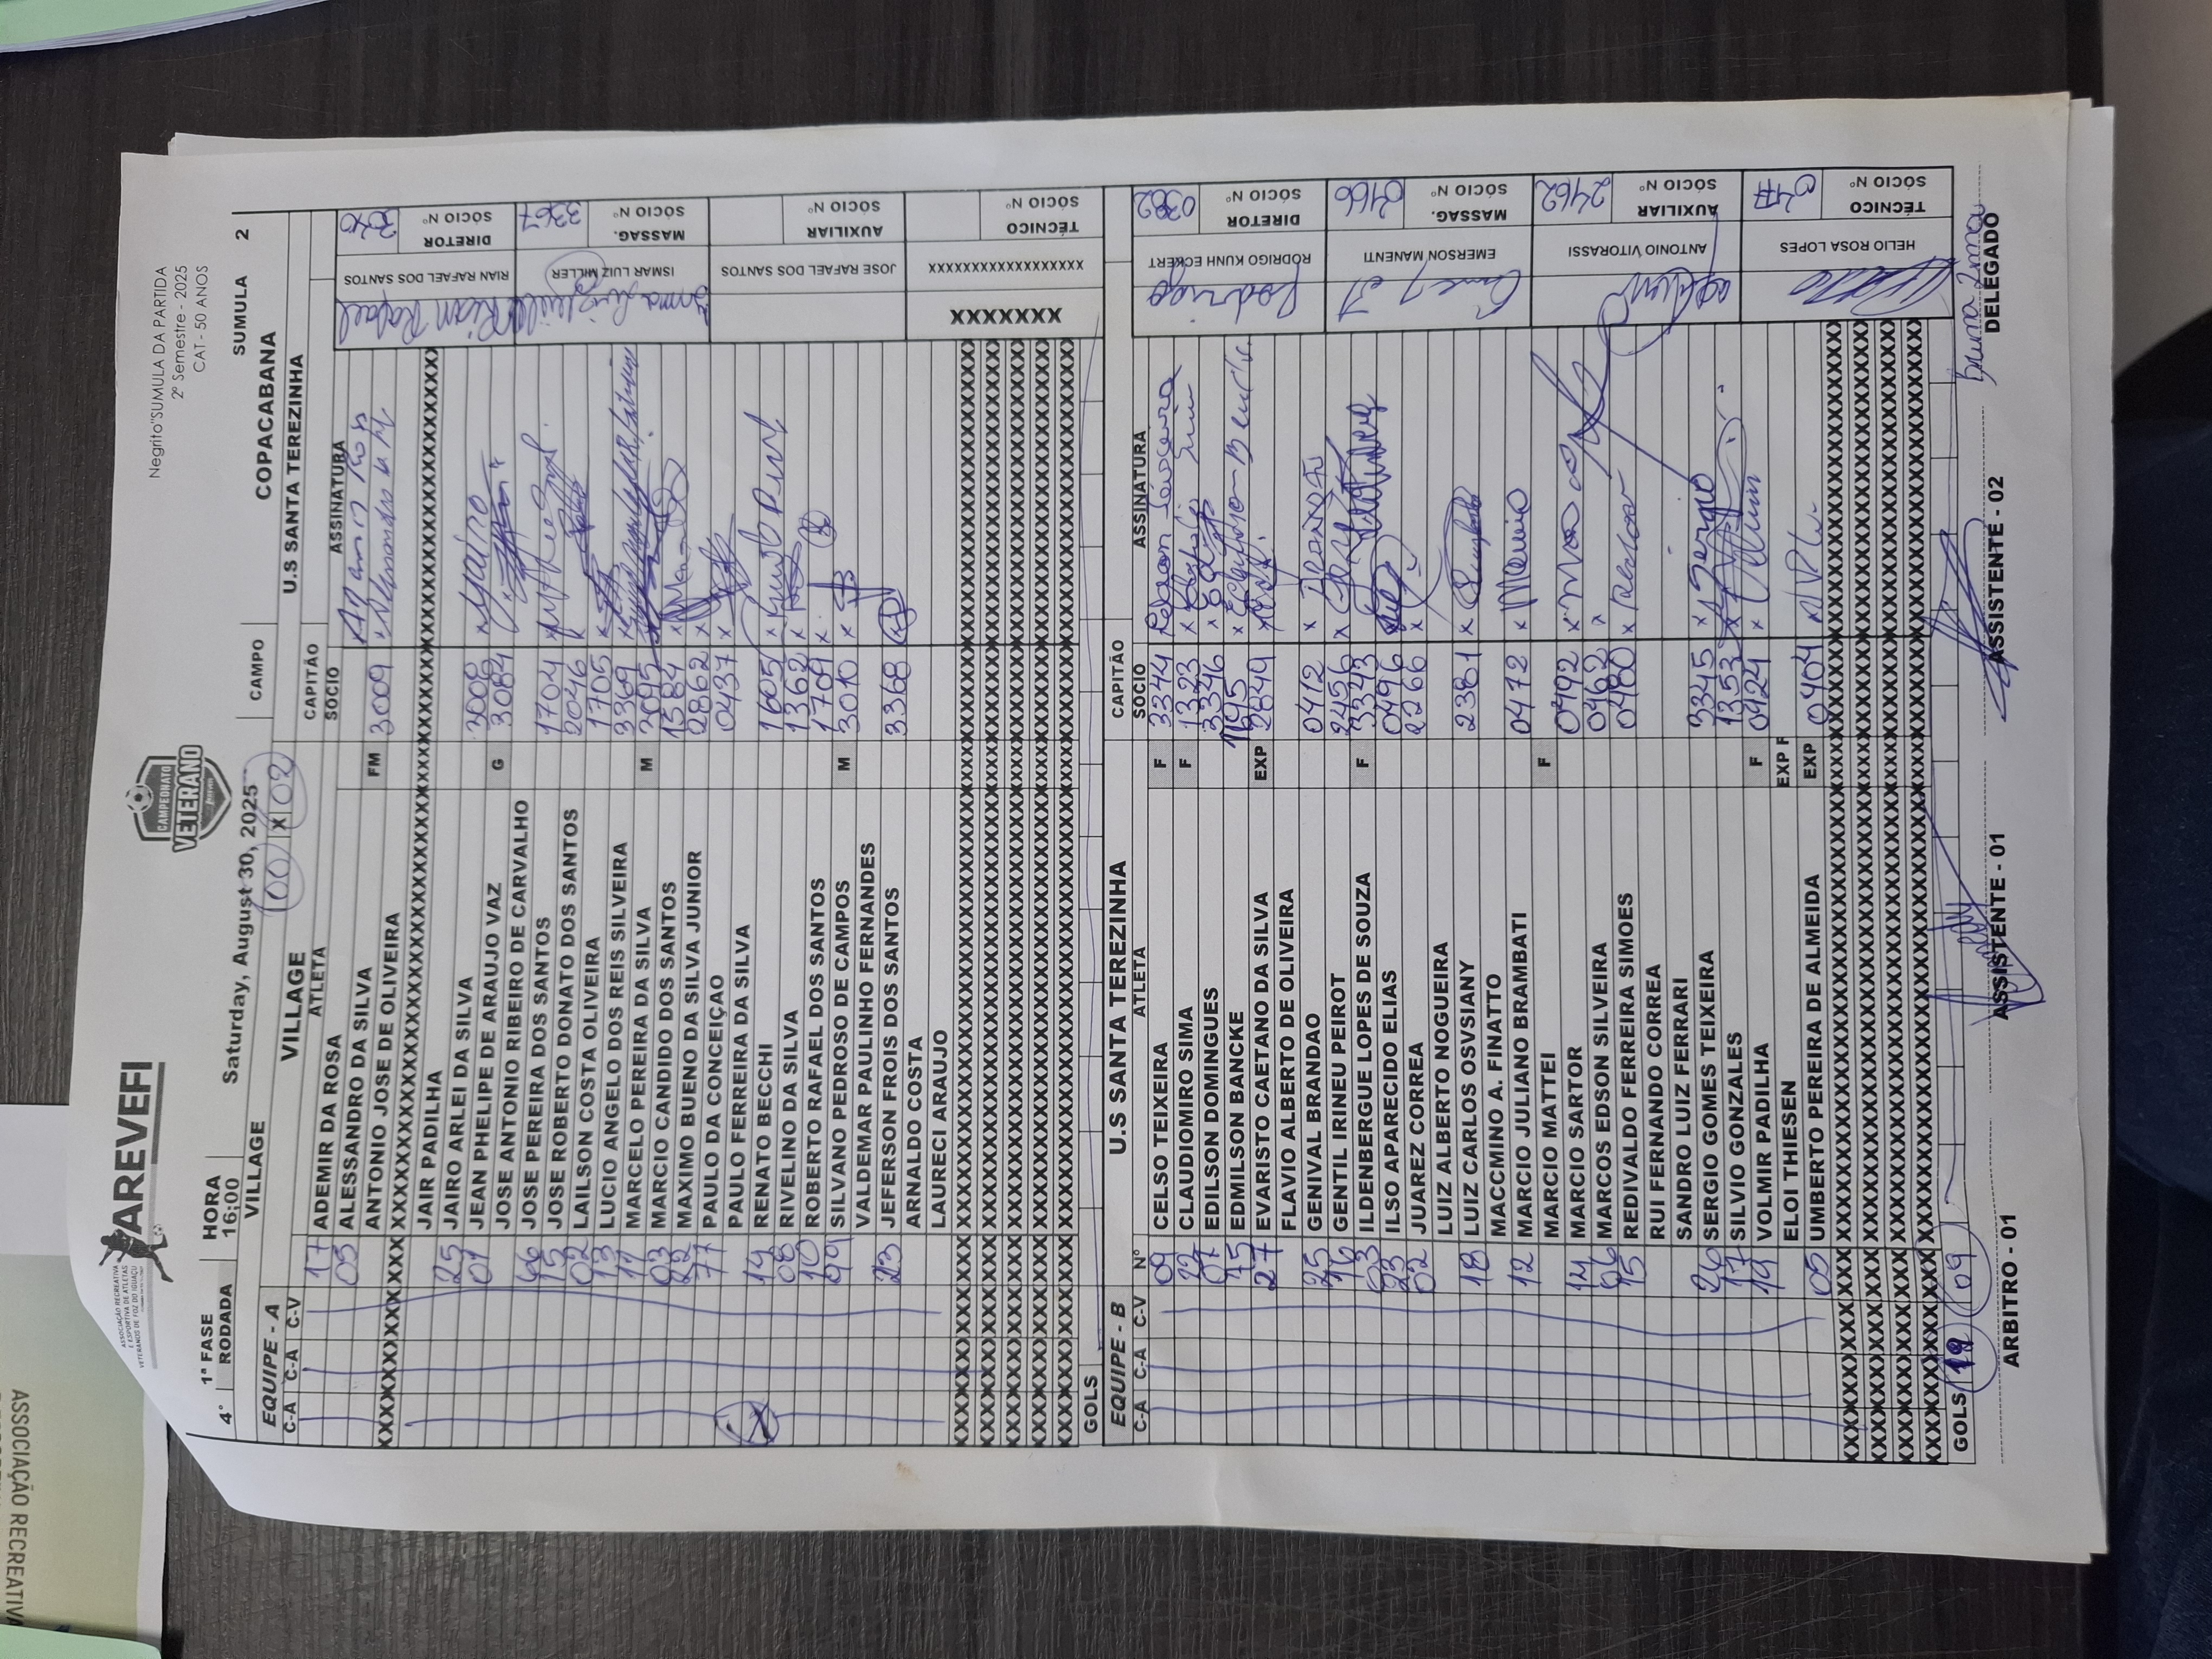 ASSOCIAÇÃO RECREATIVA
AREVEFI
ASSOCIAÇÃO RECREATIVA
E ESPORTIVA DE ATLETAS
VETERANOS DE FOZ DO IGUAÇU
CAMPEONATO
VETERANO
Negrito"SUMULA DA PARTIDA
2º Semestre - 2025
CAT - 50 ANOS
1ª FASE HORA
4° RODADA 16:00 Saturday, August 30, 2025 CAMPO COPACABANA SUMULA 2
VILLAGE 00 X 02 U.S SANTA TEREZINHA
EQUIPE - A VILLAGE CAPITÃO
C-A C-A C-V Nº ATLETA SOCIO ASSINATURA
17 ADEMIR DA ROSA
05 ALESSANDRO DA SILVA FM 3009 x
ANTONIO JOSE DE OLIVEIRA
XXXXXXXXXXXXXXXXXXXXXXXX
JAIR PADILHA
25 JAIRO ARLEI DA SILVA 3008 x Jairo
01 JEAN PHELIPE DE ARAUJO VAZ G 3084 x
JOSE ANTONIO RIBEIRO DE CARVALHO
66 JOSE PEREIRA DOS SANTOS 1704 x
15 JOSE ROBERTO DONATO DOS SANTOS 2046 x
02 LAILSON COSTA OLIVEIRA 1705 x
13 LUCIO ANGELO DOS REIS SILVEIRA 3369 x
11 MARCELO PEREIRA DA SILVA M 2095 x
03 MARCIO CANDIDO DOS SANTOS 1584 x
22 MAXIMO BUENO DA SILVA JUNIOR 2862 x
77 PAULO DA CONCEIÇAO 0437 x
PAULO FERREIRA DA SILVA
14 RENATO BECCHI 1605 x
08 RIVELINO DA SILVA 1362 x
10 ROBERTO RAFAEL DOS SANTOS 1709 x
99 SILVANO PEDROSO DE CAMPOS M 3010 x
VALDEMAR PAULINHO FERNANDES
23 JEFERSON FROIS DOS SANTOS 3368
ARNALDO COSTA
LAURECI ARAUJO
GOLS
RIAN RAFAEL DOS SANTOS DIRETOR SÓCIO Nº 3040
Rian Rafael
ISMAR LUIZ MILLER MASSAG. SÓCIO Nº 3367
JOSE RAFAEL DOS SANTOS AUXILIAR SÓCIO Nº
XXXXXXX XXXXXXXXXXXXXXXXX TÉCNICO SÓCIO Nº
EQUIPE - B U.S SANTA TEREZINHA CAPITÃO
C-A C-A C-V Nº ATLETA SOCIO ASSINATURA
09 CELSO TEIXEIRA F 3344
22 CLAUDIOMIRO SIMA F 1323 x
07 EDILSON DOMINGUES 3346 x
75 EDMILSON BANCKE 1145 x
27 EVARISTO CAETANO DA SILVA EXP 2849 x
FLAVIO ALBERTO DE OLIVEIRA
25 GENIVAL BRANDAO 0412 x
16 GENTIL IRINEU PEIROT 2456 x
03 ILDENBERGUE LOPES DE SOUZA F 3343
23 ILSO APARECIDO ELIAS 0496 x
02 JUAREZ CORREA 2266 x
LUIZ ALBERTO NOGUEIRA
18 LUIZ CARLOS OSVSIANY 2381 x
MACCMINO A. FINATTO
12 MARCIO JULIANO BRAMBATI 0472 x
MARCIO MATTEI F
14 MARCIO SARTOR 0492 x
06 MARCOS EDSON SILVEIRA 0462 x
15 REDIVALDO FERREIRA SIMOES 0480 x
RUI FERNANDO CORREA
SANDRO LUIZ FERRARI
26 SERGIO GOMES TEIXEIRA 3345 x Sergio
17 SILVIO GONZALES 1353 x
19 VOLMIR PADILHA F 0424 x
ELOI THIESEN EXP F
05 UMBERTO PEREIRA DE ALMEIDA EXP 0404 x
GOLS 19 09
RODRIGO KUNH ECKERT DIRETOR SÓCIO Nº 0382
Rodrigo
EMERSON MANENTI MASSAG. SÓCIO Nº 2166
ANTONIO VITORASSI AUXILIAR SÓCIO Nº 2462
HELIO ROSA LOPES TÉCNICO SÓCIO Nº
ARBITRO - 01 ASSISTENTE - 01 ASSISTENTE - 02 DELEGADO